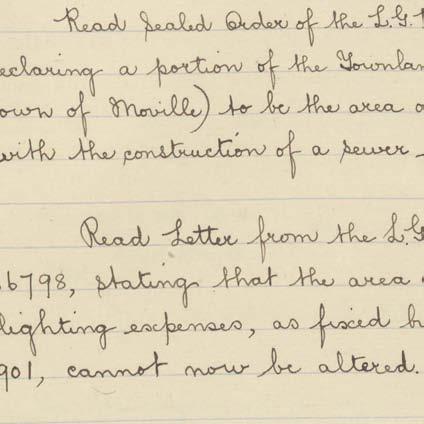 Read Sealed Order of the L.G.
eclaring a portion of the Townlan
own of Moville) to be the area o
with the construction of a sewer
Read Letter from the L.G
6798, stating that the area
lighting expenses, as fixed b
901, cannot now be altered.